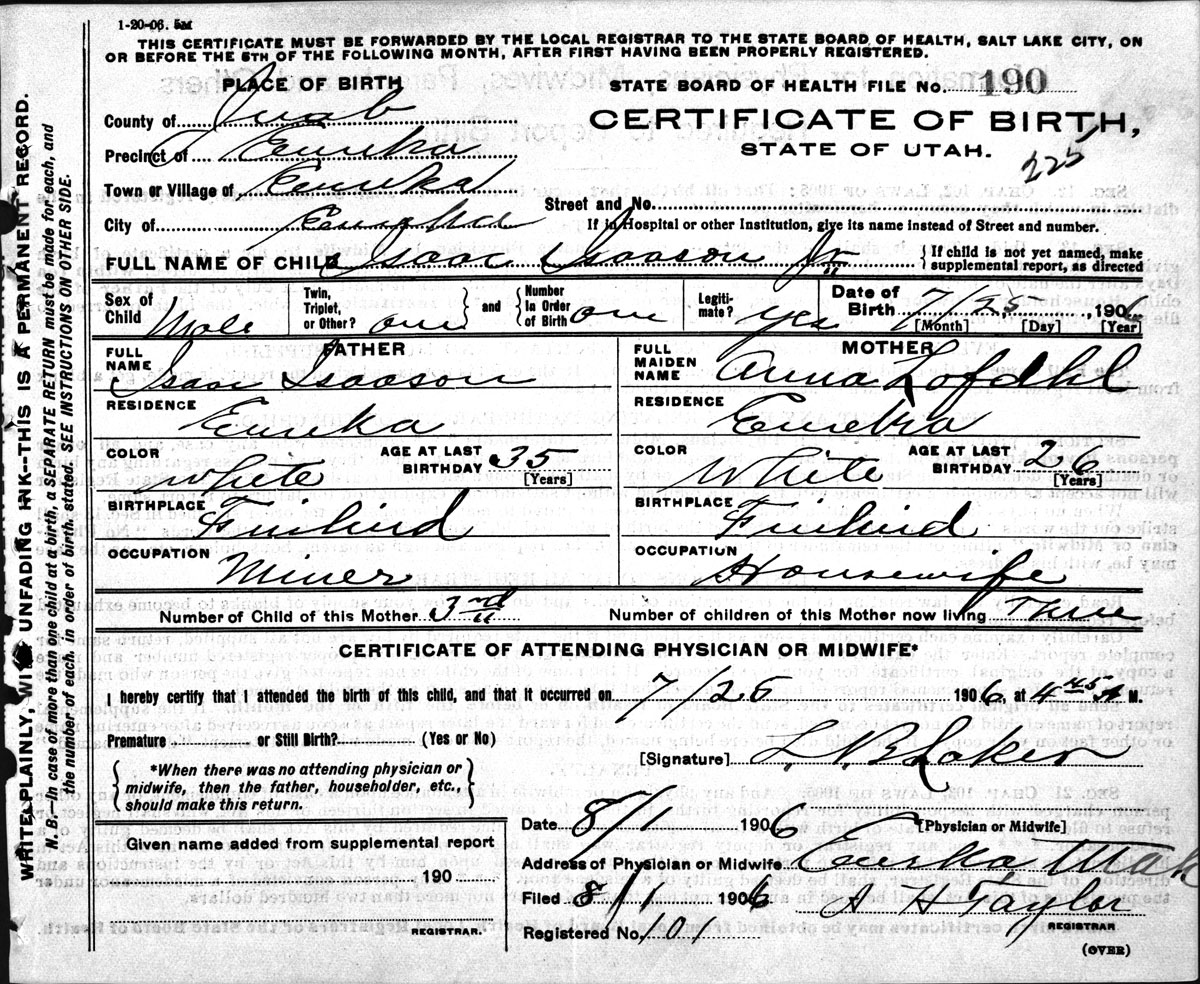 1-20-06. 5M
THIS CERTIFICATE MUST BE FORWARDED BY THE LOCAL REGISTRAR TO THE STATE BOARD OF HEALTH, SALT LAKE CITY, ON
OR BEFORE THE 5TH OF THE FOLLOWING MONTH, AFTER FIRST HAVING BEEN PROPERLY REGISTERED.
PLACE OF BIRTH
STATE BOARD OF HEALTH FILE No. 190
County of Juab
CERTIFICATE OF BIRTH,
Precinct of Eureka
STATE OF UTAH.
225
Town or Village of Eureka
Street and No.
City of Eureka
If in Hospital or other Institution, give its name instead of Street and number.
FULL NAME OF CHILD Isaac Isaacson Jr
{ If child is not yet named, make
supplemental report, as directed
Sex of Child Male
Twin, Triplet, or Other? one
and
Number in Order of Birth one
Legiti-mate? yes
Date of Birth 7/25, 1906
[Month] [Day] [Year]
FATHER
FULL NAME Isaac Isaacson
MOTHER
FULL MAIDEN NAME Anna Lofdhl
RESIDENCE Eureka
RESIDENCE Eureka
COLOR White
AGE AT LAST BIRTHDAY 35 [Years]
COLOR White
AGE AT LAST BIRTHDAY 26 [Years]
BIRTHPLACE Finlind
BIRTHPLACE Finlind
OCCUPATION Miner
OCCUPATION Housewife
Number of Child of this Mother 3rd
Number of children of this Mother now living Three
CERTIFICATE OF ATTENDING PHYSICIAN OR MIDWIFE*
I hereby certify that I attended the birth of this child, and that it occurred on 7/25 1906 at 4 45 A M.
Premature or Still Birth? (Yes or No)
[Signature]
{ *When there was no attending physician or
midwife, then the father, householder, etc.,
should make this return. }
Date 8/1 1906
[Physician or Midwife]
Given name added from supplemental report
Address of Physician or Midwife Eureka Utah
190
Filed 8/1 1906 A H Taylor
REGISTRAR.
Registered No. 101
REGISTRAR
(OVER)
WRITE PLAINLY, WITH UNFADING INK—THIS IS A PERMANENT RECORD.
N. B.—In case of more than one child at a birth, a SEPARATE RETURN must be made for each, and
the number of each, in order of birth, stated. SEE INSTRUCTIONS ON OTHER SIDE.